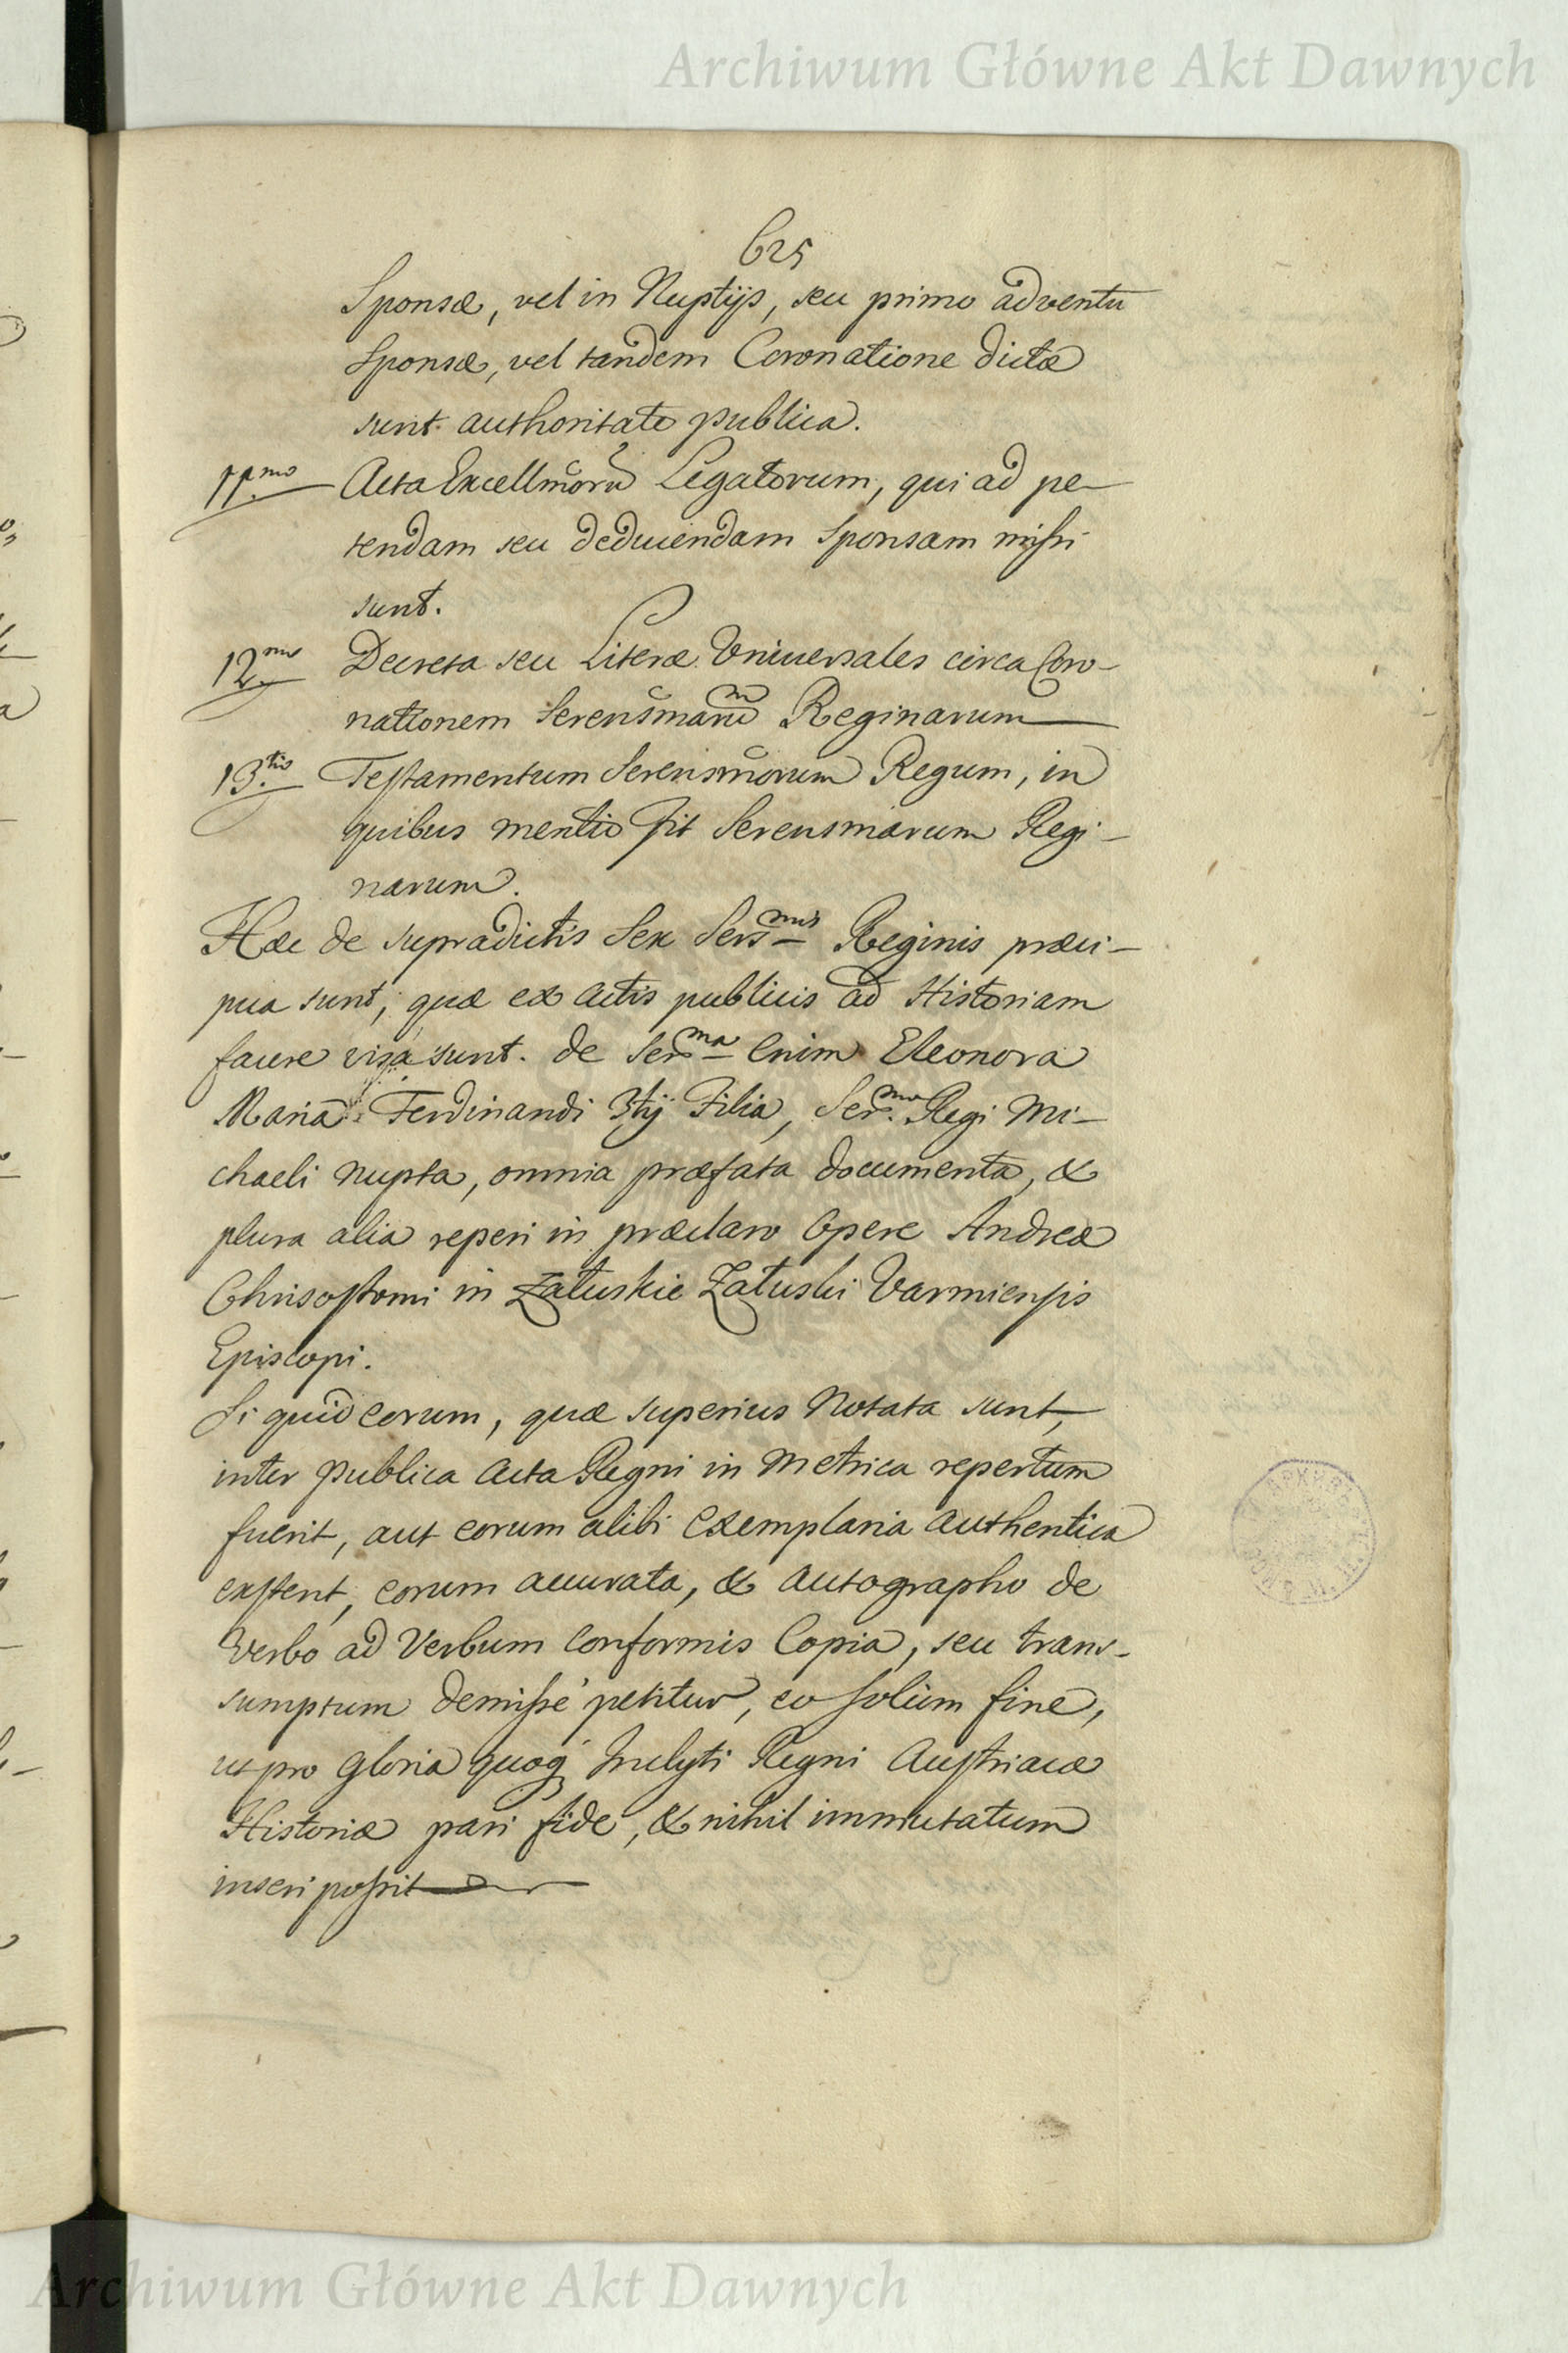 Archiwum Główne Akt Dawnych
625
Sponsæ, vel in Nuptijs, seu primo adventu
Sponsæ, vel tandem Coronatione dictæ
sunt authoritate publica.
11.mo Acta Excellm̃orũ Legatorum, qui ad pe-
tendam seu deducendam Sponsam missi
sunt.
12.mo Decreta seu Literæ Universales circa Coro-
nationem Serensm̃arũ Reginarum
13.tio Testamentum Serenism̃orum Regum, in
quibus mentio fit Serensmarum Regi-
narum.
Hæc de supradictis Sex Sers.mis Reginis præci-
pua sunt, quæ ex Actis publicis ad Historiam
facere visa sunt. de Ser.ma Enim Eleonora
Maria Ferdinandi 3tij Filia, Ser.mo Regi Mi-
chaeli nupta, omnia præfata documenta, &
plura alia reperi in præclaro Opere Andreæ
Chrisostomi in Załuskie Załuski Varmiensis
Episcopi.
Si quid eorum, quæ superius Notata sunt,
inter publica Acta Regni in Metrica repertum
fuerit, aut eorum alibi Exemplaria Authentica
exstent, eorum accurata, & Autographo de
Verbo ad Verbum Conformis Copia, seu trans-
sumptum demissé petitur, eo solùm fine,
ut pro gloria quoq; Inclyti Regni Austriacæ
Historiæ pari fide, & nihil immutatum
inseri possit
Archiwum Główne Akt Dawnych